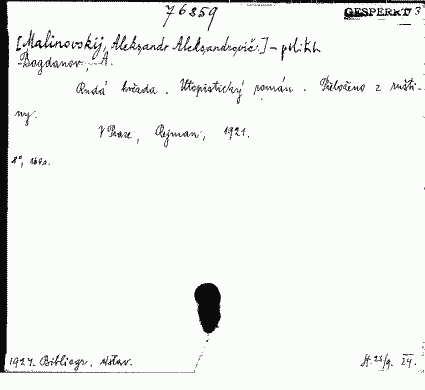 76859
GESPERRT 3
[Malinovskij, Aleksandr Aleksandrovič.] –
Bogdanov, A.
Rudá hvězda. Utopistický román. Přeloženo z rušti-
ny.
V Praze, Rejman, 1921.
8°, 160 s.
1924. Bibliogr. ústav.